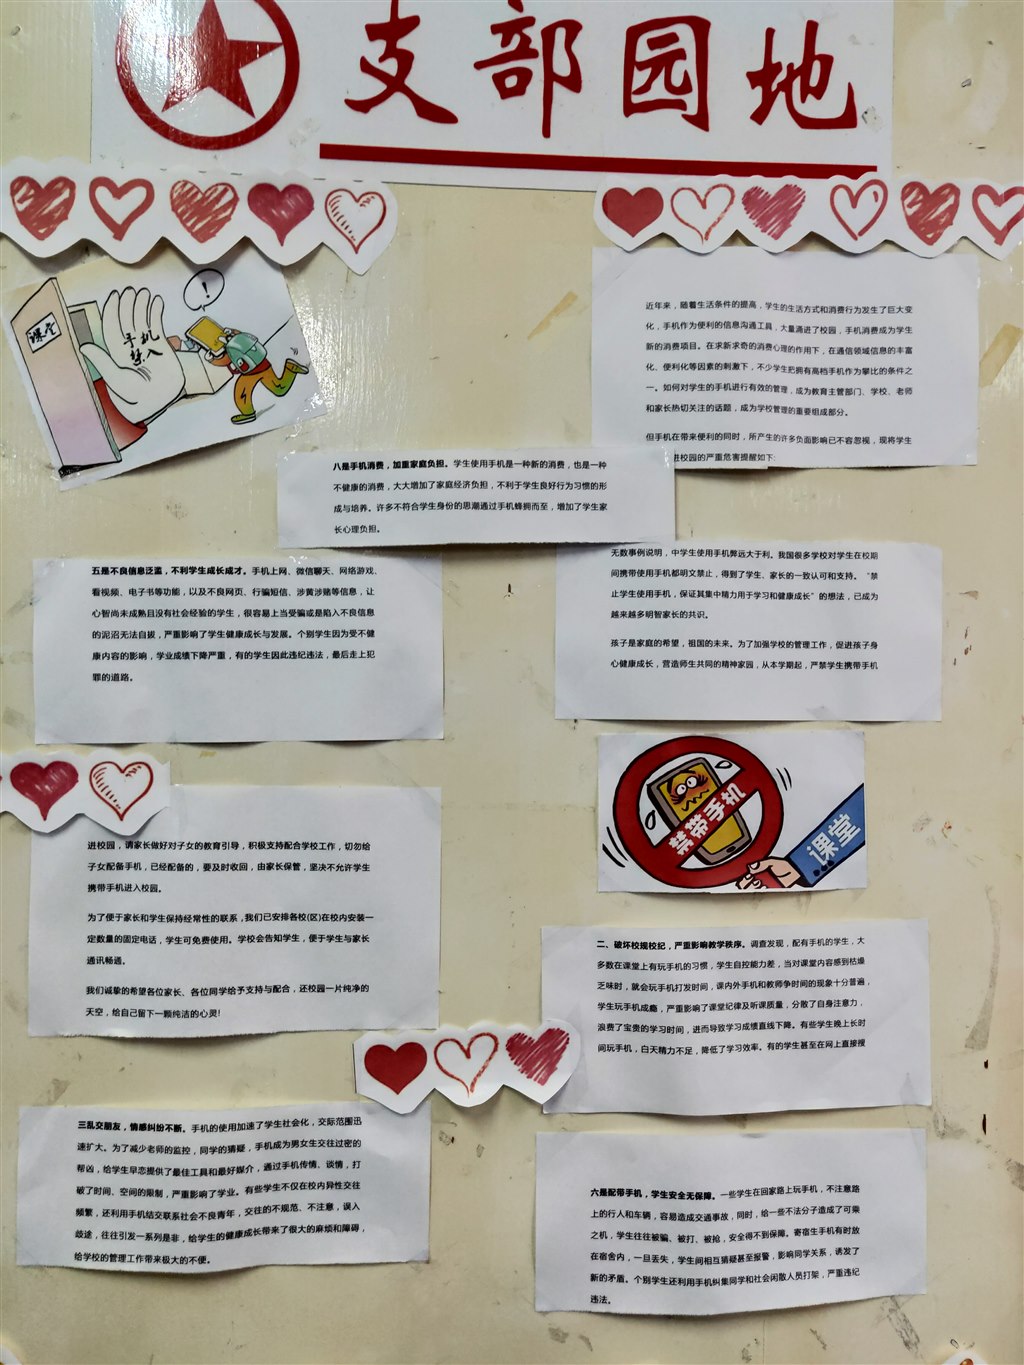 支部园地
课堂
手机
禁入
!
近年来，随着生活条件的提高，学生的生活方式和消费行为发生了巨大变
化，手机作为便利的信息沟通工具，大量涌进了校园，手机消费成为学生
新的消费项目。在求新求奇的消费心理的作用下，在通信领域信息的丰富
化、便利化等因素的刺激下，不少学生把拥有高档手机作为攀比的条件之
一。如何对学生的手机进行有效的管理，成为教育主管部门、学校、老师
和家长热切关注的话题，成为学校管理的重要组成部分。
但手机在带来便利的同时，所产生的许多负面影响已不容忽视，现将学生
进校园的严重危害提醒如下:
八是手机消费，加重家庭负担。学生使用手机是一种新的消费，也是一种
不健康的消费，大大增加了家庭经济负担，不利于学生良好行为习惯的形
成与培养。许多不符合学生身份的思潮通过手机蜂拥而至，增加了学生家
长心理负担。
五是不良信息泛滥，不利学生成长成才。手机上网、微信聊天、网络游戏、
看视频、电子书等功能，以及不良网页、行骗短信、涉黄涉赌等信息，让
心智尚未成熟且没有社会经验的学生，很容易上当受骗或是陷入不良信息
的泥沼无法自拔，严重影响了学生健康成长与发展。个别学生因为受不健
康内容的影响，学业成绩下降严重，有的学生因此违纪违法，最后走上犯
罪的道路。
无数事例说明，中学生使用手机弊远大于利。我国很多学校对学生在校期
间携带使用手机都明文禁止，得到了学生、家长的一致认可和支持。“禁
止学生使用手机，保证其集中精力用于学习和健康成长”的想法，已成为
越来越多明智家长的共识。
孩子是家庭的希望，祖国的未来。为了加强学校的管理工作，促进孩子身
心健康成长，营造师生共同的精神家园，从本学期起，严禁学生携带手机
禁带手机
课堂
进校园，请家长做好对子女的教育引导，积极支持配合学校工作，切勿给
子女配备手机，已经配备的，要及时收回，由家长保管，坚决不允许学生
携带手机进入校园。
为了便于家长和学生保持经常性的联系，我们已安排各校(区)在校内安装一
定数量的固定电话，学生可免费使用。学校会告知学生，便于学生与家长
通讯畅通。
我们诚挚的希望各位家长、各位同学给予支持与配合，还校园一片纯净的
天空，给自己留下一颗纯洁的心灵!
二、破坏校规校纪，严重影响教学秩序。调查发现，配有手机的学生，大
多数在课堂上有玩手机的习惯，学生自控能力差，当对课堂内容感到枯燥
乏味时，就会玩手机打发时间，课内外手机和教师争时间的现象十分普遍，
学生玩手机成瘾，严重影响了课堂纪律及听课质量，分散了自身注意力，
浪费了宝贵的学习时间，进而导致学习成绩直线下降。有些学生晚上长时
间玩手机，白天精力不足，降低了学习效率。有的学生甚至在网上直接搜
三乱交朋友，情感纠纷不断。手机的使用加速了学生社会化，交际范围迅
速扩大。为了减少老师的监控，同学的猜疑，手机成为男女生交往过密的
帮凶，给学生早恋提供了最佳工具和最好媒介，通过手机传情、谈情，打
破了时间、空间的限制，严重影响了学业。有些学生不仅在校内异性交往
频繁，还利用手机结交联系社会不良青年，交往的不规范、不注意，误入
歧途，往往引发一系列是非，给学生的健康成长带来了很大的麻烦和障碍，
给学校的管理工作带来极大的不便。
六是配带手机，学生安全无保障。一些学生在回家路上玩手机，不注意路
上的行人和车辆，容易造成交通事故，同时，给一些不法分子造成了可乘
之机，学生往往被骗、被打、被抢，安全得不到保障。寄宿生手机有时放
在宿舍内，一旦丢失，学生间相互猜疑甚至报警，影响同学关系，诱发了
新的矛盾。个别学生还利用手机纠集同学和社会闲散人员打架，严重违纪
违法。